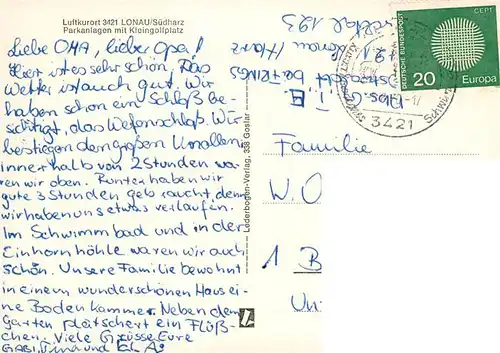 Luftkurort 3421 LONAU/Südharz
Parkanlagen mit Kleingolfplatz
Liebe OMA, lieber Opa!
Hier ist es sehr schön. Das
Wetter ist auch gut. Wir
haben schon ein Schloß be-
sichtigt, das Welfenschloß. Wir
bestiegen den großen Knollen
innerhalb von 2 Stunden wa-
ren wir oben. Runter haben wir
gute 3 Stunden gebraucht, denn
wir haben uns etwas verlaufen.
Im Schwimmbad und in der
Einhornhöhle waren wir auch
schön. Unsere Familie bewohnt
in einem wunderschönen Haus ei-
ne Bodenkammer. Neben dem
Garten plätschert ein Flüß-
chen. Viele Grüsse Eure
GABI, und
Lederbogen-Verlag, 338 Goslar
3421 Lonau/Harz
193
DEUTSCHE BUNDESPOST
CEPT
20
Europa
3421
Familie
W. O
1 B
Un